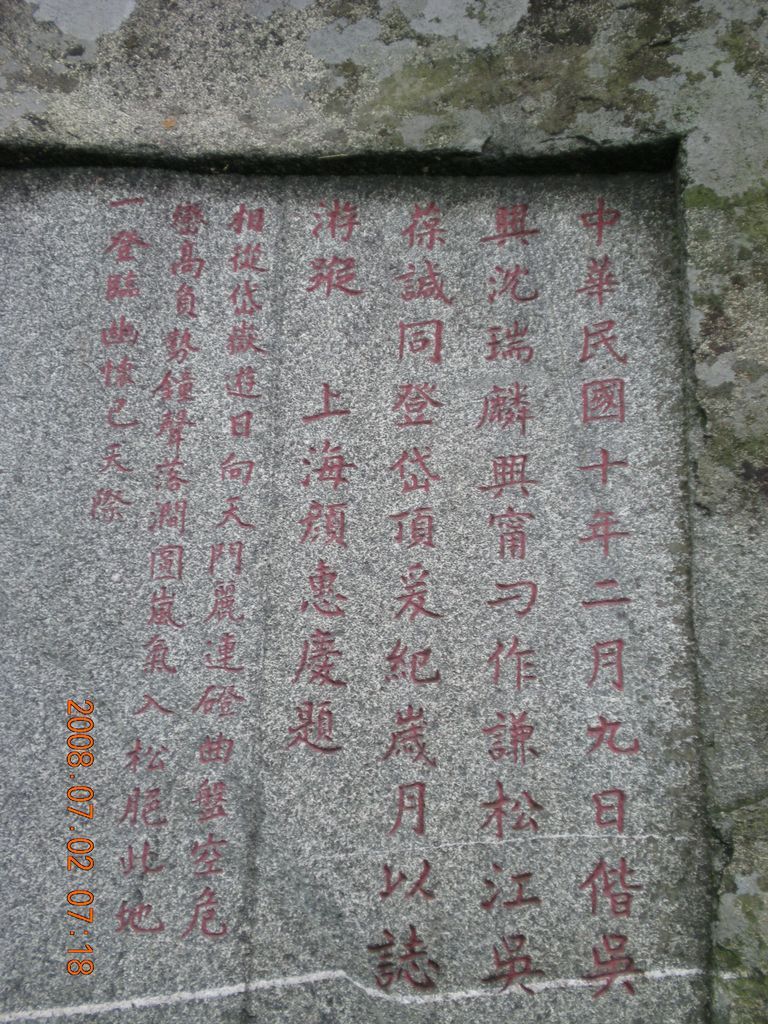 中華民國十年二月九日偕吳
興沈瑞麟興甯刁作謙松江吳
葆誠同登岱頂爰紀歲月以誌
游蹤 上海顏惠慶題
相從岱嶽遊日向天門麗連磴曲盤空危
巒高負勢鐘聲落澗圓嵐氣入松肥此地
一登臨幽懷已天際
2008.07.02 07:18